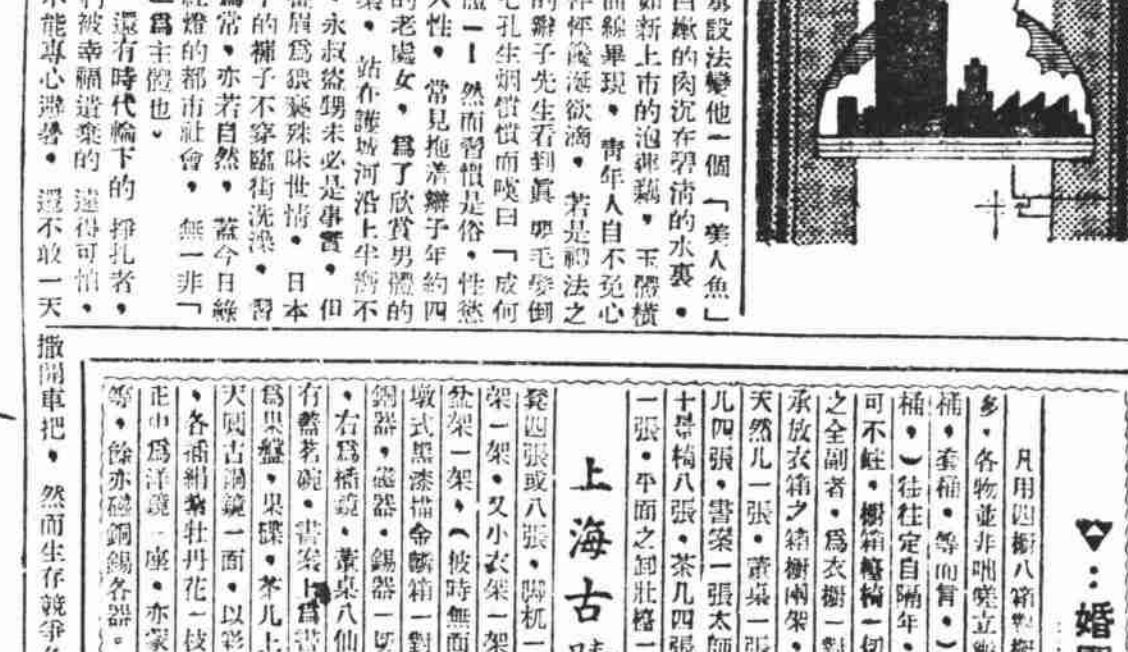 設法變他一個「美人魚」
的肉沉在碧清的水裏。
如新上市的泡鮮藕，玉體橫
畢現，青年人自不免心
怦怦饞涎欲滴，若是禮法之
的辮子先生看到眞要毛髮倒
毛孔生烟慣慣而嘆曰「成何
體」！然而習慣是俗，性慾
人性，常見拖着辮子年約四
的老處女，爲了欣賞男體的
，站在護城河沿上半嚮不
永叔盜甥未必是事實，但
眉爲猥褻殊昧世情。日本
的褲子不穿臨街洗澡，習
爲常，亦若自然，蓋今日綠
紅燈的都市社會，無一非「
爲主體也。
還有時代輪下的掙扎者，
們被幸福遺棄的遠得可怕，
不能專心避暑。還不敢一天
撒開車把，然而生存競爭
婚
凡用四櫥八箱對櫥
多，各物並非咄嗟立
桶，套桶，等而言，）
桶，）往往定自隔年，
可不雖，櫥箱檯椅一切
之全副者，爲衣櫥一對
承放衣箱之箱櫥兩架，
天然几一張，蕭桌一張
几四張，書案一張太師
十景椅八張，茶几四張
一張，平面之卸壯檯一
上海古
凳四張或八張，脚杌一
架一架，又小衣架一架
盆架一架，（彼時無面
墩式黑漆描金髹箱一對
銅器，磁器，錫器一
，右爲插鏡，蕭桌八仙
有藍茗碗，書案上爲書
爲果盤，果碟，茶几上
大周古銅鏡一面，以彩
，各插絹紮牡丹花一枝
正中爲洋鏡一座，亦蒙
等，餘亦磁銅錫各器。